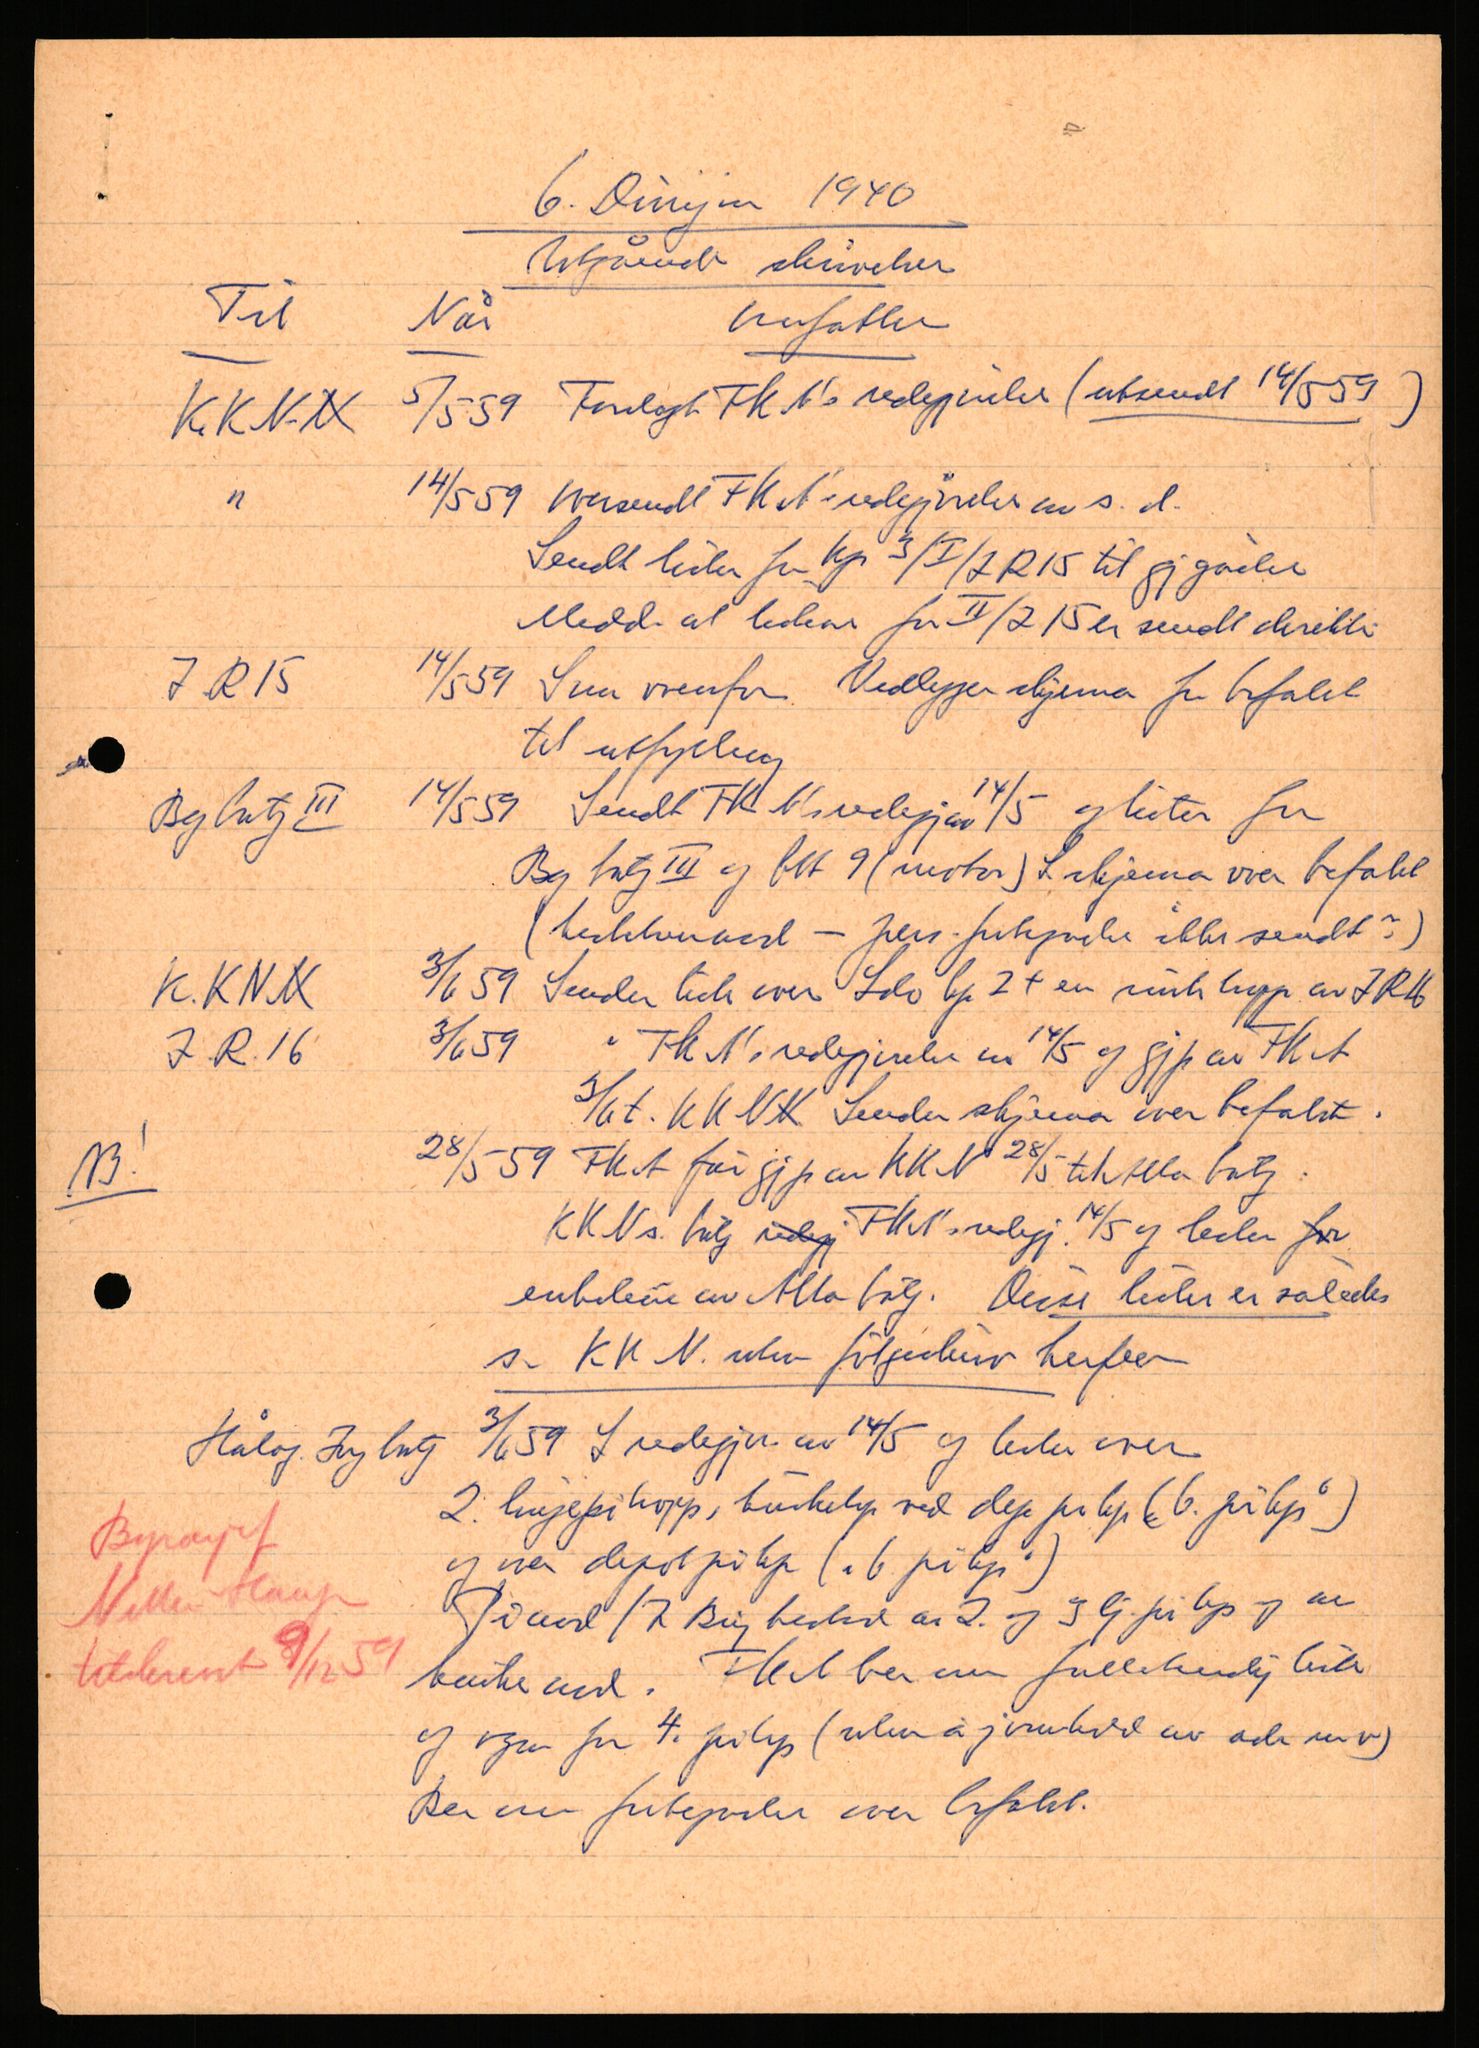 6. Divisjon 1940
Utgående skrivelser
Til Når Innhatter
K.K.N.N 5/5 59 Forelagt FKN's redegjørelse (utsendt 14/5 59)
" 14/5 59 Oversendt FKN's redegjørelse av s. d.
Sendt lister for kp 3/I/IR 15 til gj gåelse
Medd. at listene for II/I 15 er sendt direkte
I R 15 14/5 59 Som ovenfor. Vedlegger skjema for befalet
til utfylling
Bg batj III 14/5 59 Sendt FKN's redegj av 14/5 og lister for
Bg batj III og btt 9 (motor) S skjema over befalet
( – pers. fortegnelse ikke sendt?)
K.KN.N 3/6 59 Sender liste over Ldv kp I + en av IR 16
I. R. 16 3/6 59 " FKN's redegjørelse av 14/5 og gjp av FKN
3/6 t. KKNN Sender skjema over befalet.
NB! 28/5 59 FKN får gjp av KKN 28/5 til Alta batj.
KKN s. batj redegj FKN's redegj. 14/5 og lister for
enhetene av Alta batj. Disse lister er således
s. KKN. uten følgeskriv herfra
Hålog. Ing batj 3/6 59 S redegjør. av 14/5 og lister over
2. linjepi tropp, ved dep pi kp („6. pi kp“)
og over depot pi kp („6 pi kp“)
I Brig bestod av 2. og 3 lj. pi kp og av
. FKN ber om fullstendig liste
og også for 4. pi kp (uten av avd m v)
Ber om fortegnelse over befalet.
Byråsjef
Hauge
8/12 59